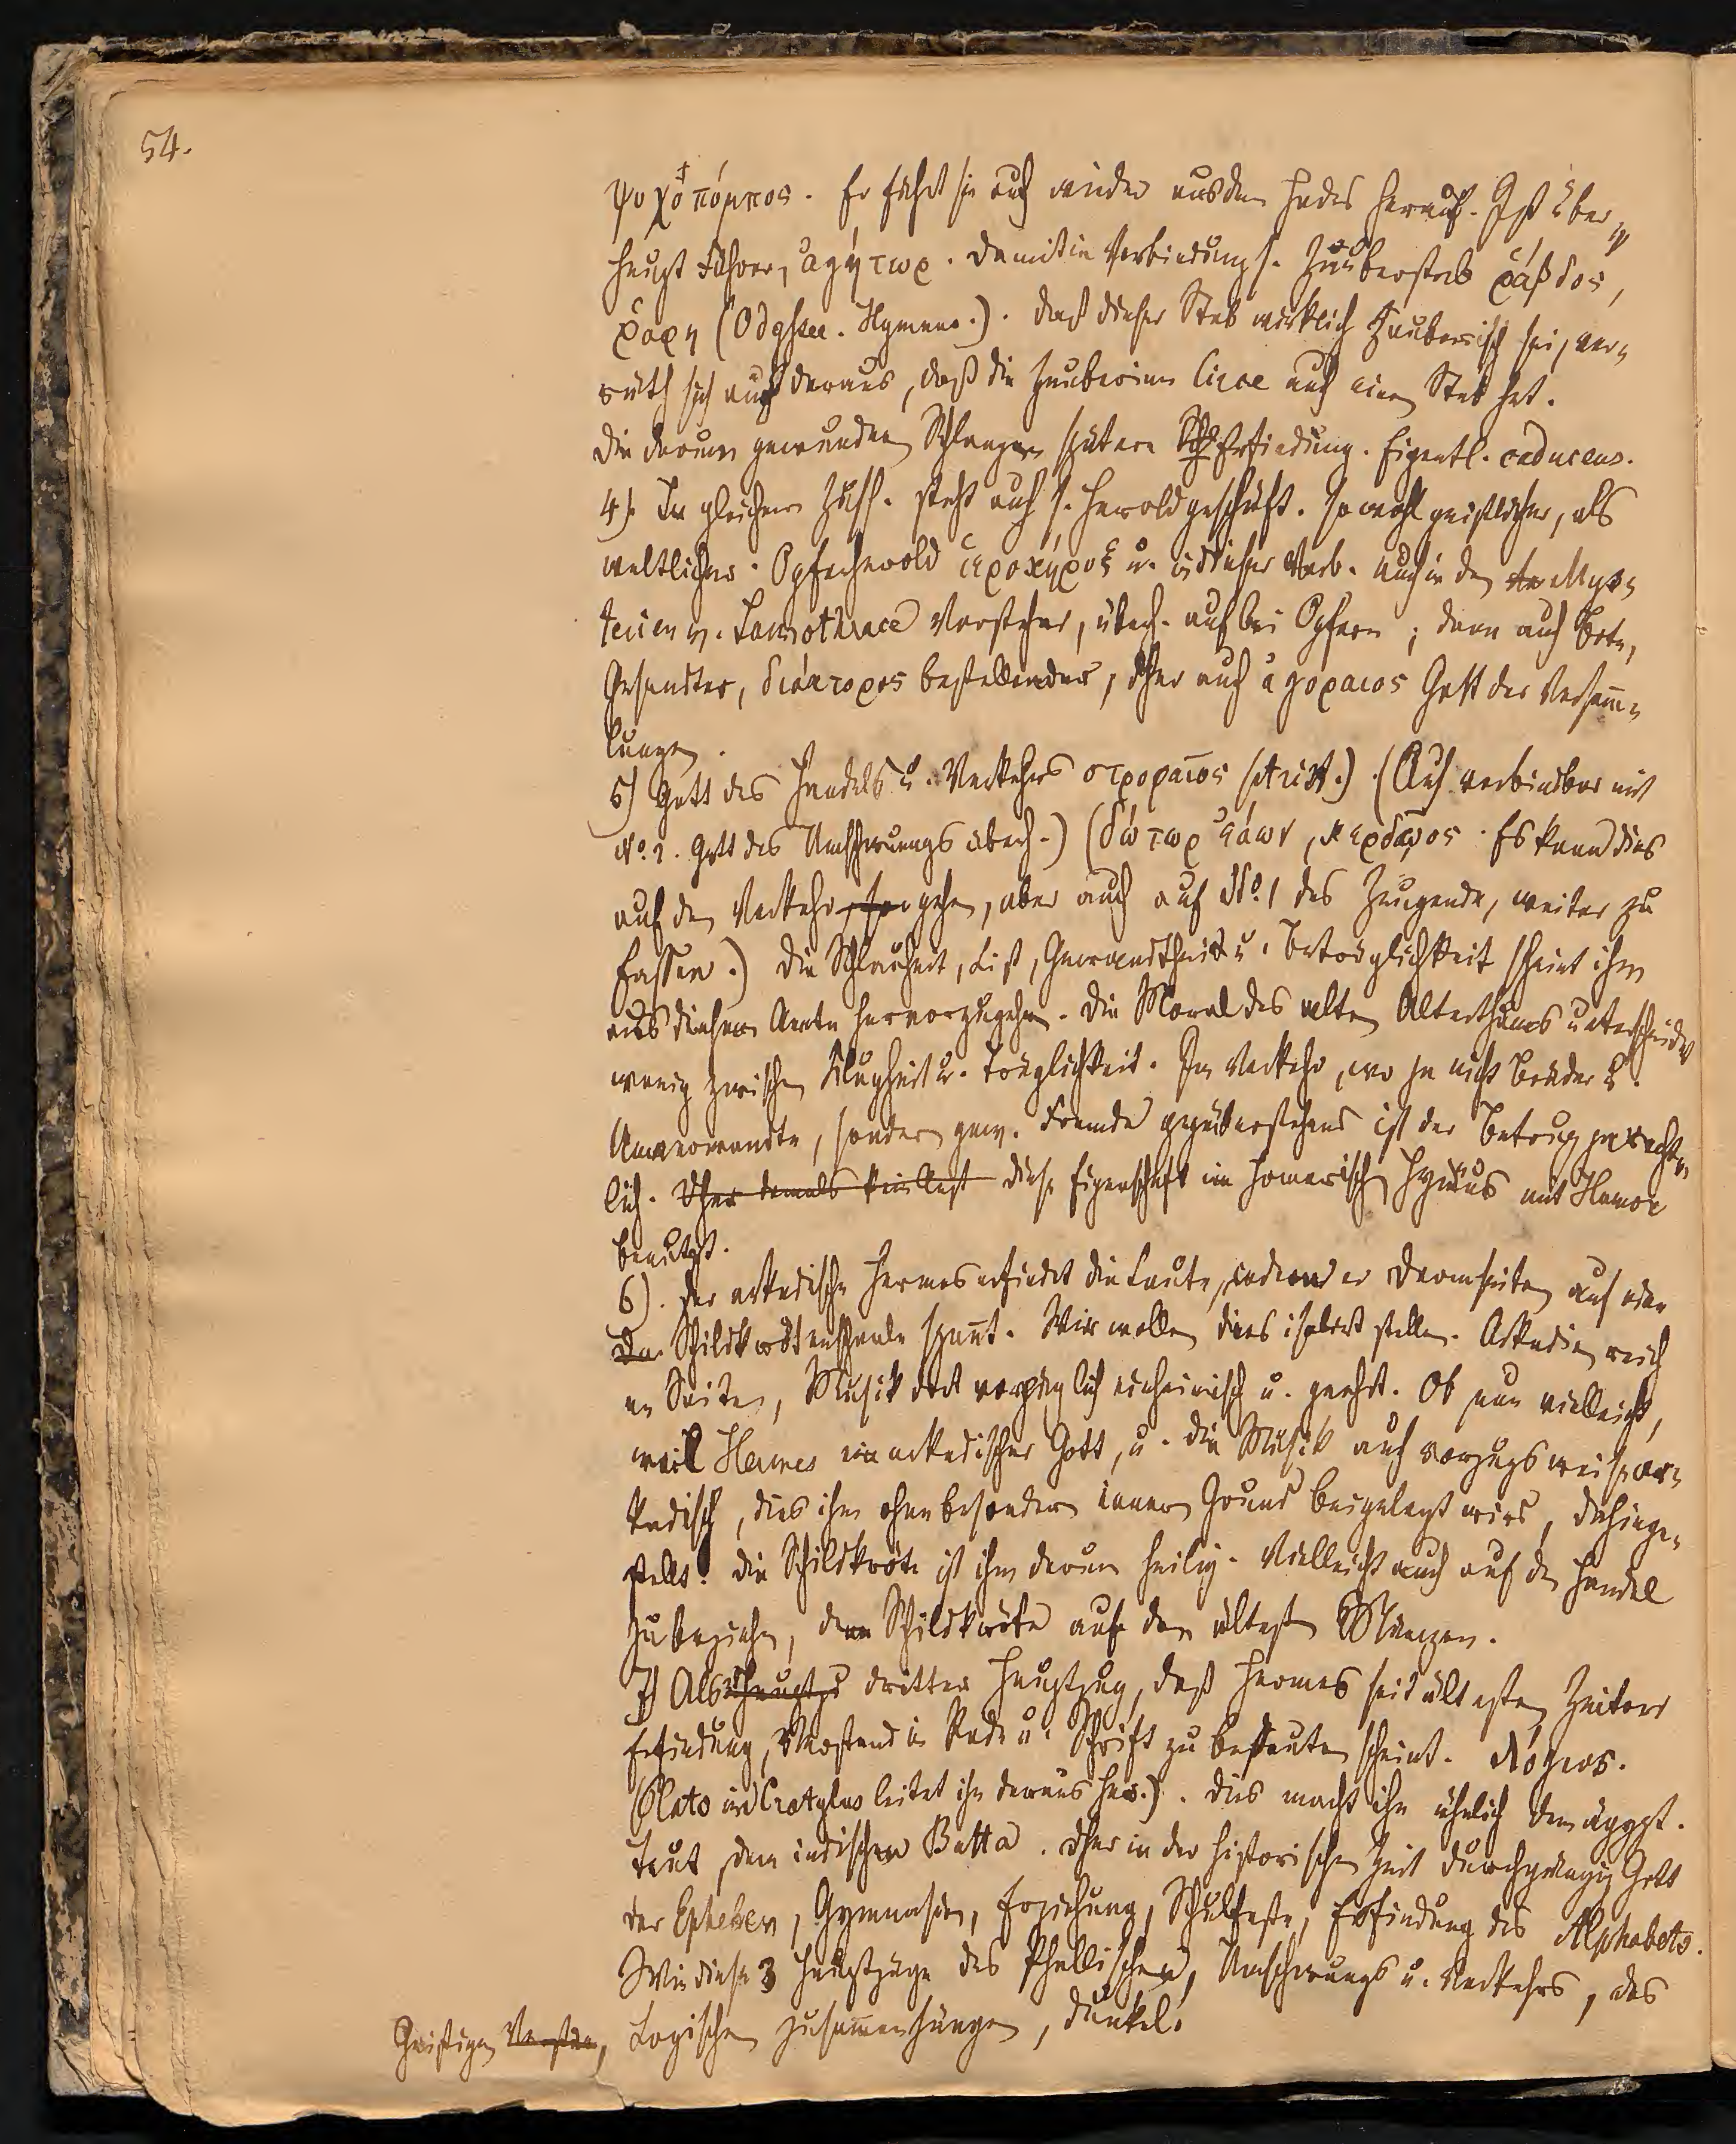 54.
ψυχοπόμπος. Er führt sie auch wieder aus dem Hades herauf. Ist über„
haupt Führer, ἁγήτωρ. Damit in Verbindung s. Zauberstab ῥάβδος,
(Odyssee. Hymnus.). Daß dieser Stab wirklich zauberisch sei, ver„
räth sich auch daraus, daß die Zauberinn Circe auch einen Stab hat.
Die darum gewundnen Schlangen spätere Erfindung. Eigentl. caduceus.
4). In gleichem Zush. steht auch s. Heroldgeschäft. sowohl geistlicher, als
weltlicher. Opferherold ἱεροκήρυξ u. in dieser Verb. auch in den Mys„
terien v. Samothrace Vorsteher, überh. auch bei Opfern; dann auch Bote,
Gesandter, διάκτορος bestellender, dher auch ἀγοραιος Gott der Versam̄„
lungen.
5) Gott des Handels u. Verkehrs στροφαῖος (Arist.) (Auch verbindbar mit
No. 2. Gott des Umschwungs überh.) (δώτωρ ἐάων, κερδῷος. Es kann dies
auf den Verkehr gehen, aber auch auf No. 1 des Zeugende, weiter zu
fassen.) Die Schlauheit, List, Gewandtheit u. Betrüglichkeit scheint ihm
aus diesem Amte hervorzugehen. Die Moral des alten Alterthums unterscheidet
wenig zwischen Klugheit u. Trüglichkeit. Im Verkehr, wo ja nicht Brüder u.
Anverwandte, sondern gew. Fremde gegenüberstehend ist der Betrug ja recht„
lich. Dher damals kein diese Eigenschaft im homerischen Hym̄us mit Humor
benutzt.
6). Der arkadische Hermes erfindet die Laute, indem er Darmsaiten auf eine
Schildkrötenschale span̄t. Wir wollen dies isolirt stellen. Arkadien reich
an Saiten, Musik dort vorzüglich einheimisch u. geehrt. Ob nun vielleicht,
weil Hermes ein arkadischer Gott, u. die Musik auch vorzugsweise ar„
kadisch, dies ihm ohne besondern innern Grund beigelegt wird, dahinge„
stellt! Die Schildkröte ist ihm darum heilig. Vielleicht auch auf den Handel
zu beziehen, denn Schildkröte auf den ältesten Münzen.
7) Als Hauptzu dritter Hauptzug, daß Hermes seit ältesten Zeiten
Erfindung, Verstand in Rede u. Schrift zu bedeuten scheint. λόγιος.
(Plato im Cratylus leitet ihn daraus her.). Dies macht ihn ähnlich dem ägypt.
Taut, dem indischen Butta. Dher in der historischen Zeit durchgängig Gott
der Epheben, Gymnasien, Erziehung, Schulfeste, Erfindung des Alphabets.
Wie diese 3 Hauptzüge des Phallischen, Umschwungs u. Verkehrs, des
Geistigen, Logischen zusam̄enhängen, dunkel!